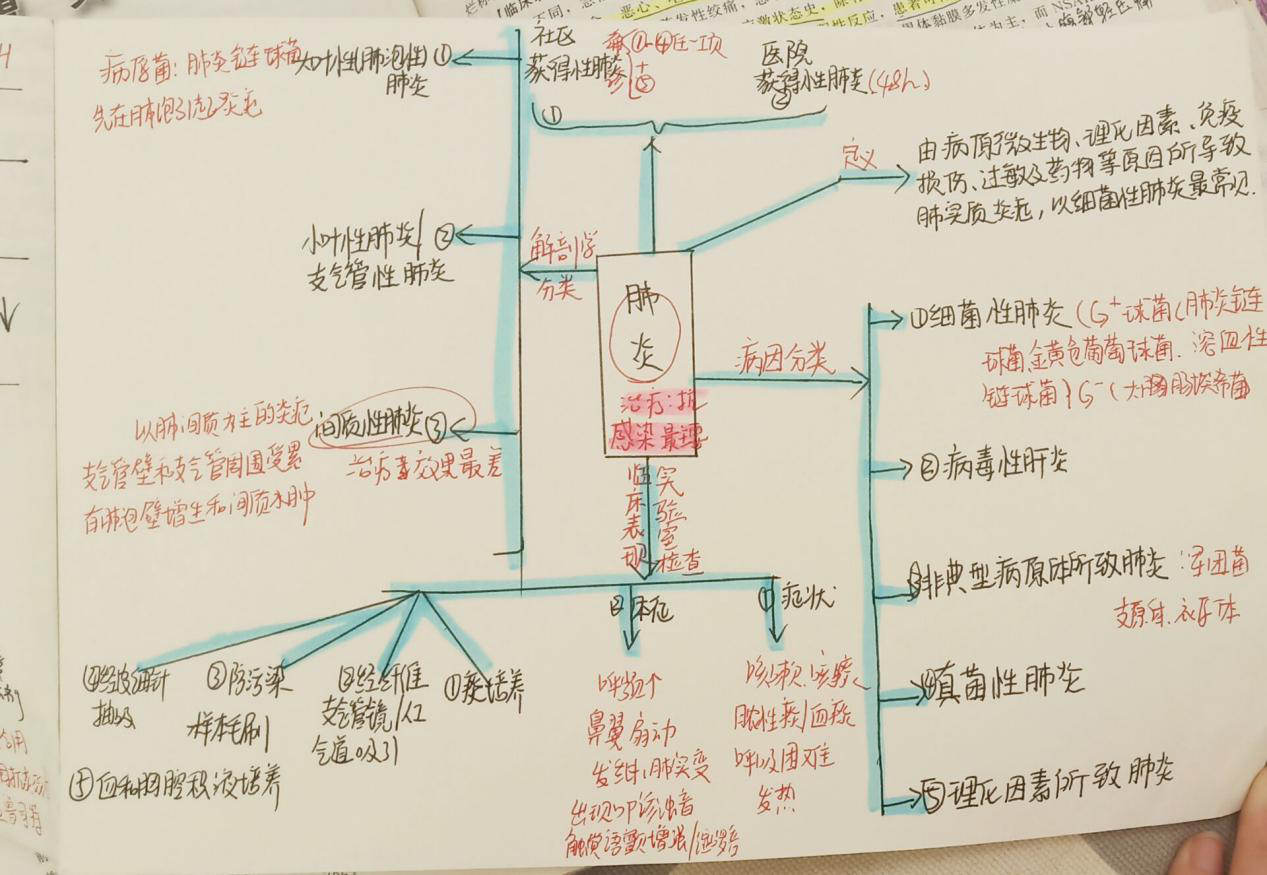 社区
获得性肺炎
①
需①-④任一项
+
⑤
医院
获得性肺炎(48h)
②
定义
由病原微生物、理化因素、免疫
损伤、过敏及药物等原因所导致
肺实质炎症，以细菌性肺炎最常见.
病原菌：肺炎链球菌
先在肺泡引起炎症
大叶性(肺泡性)①
肺炎
小叶性肺炎/②
支气管性肺炎
解剖学
分类
间质性肺炎③
治疗效果最差
以肺间质为主的炎症
支气管壁和支气管周围受累
有肺泡壁增生和间质水肿
肺
炎
治疗：抗
感染最
病因分类
①细菌性肺炎(G⁺球菌(肺炎链
球菌、金黄色葡萄球菌、溶血性
链球菌)G⁻(大肠埃希菌
②病毒性肝炎
③非典型病原体所致肺炎：军团菌
支原体、衣原体
④真菌性肺炎
⑤理化因素所致肺炎
临床表现
实验室检查
①症状
咳嗽、咳痰
脓性痰/血痰
呼吸困难
发热
②体征
呼吸个
鼻翼扇动
发绀、肺实变
出现叩诊浊音
触觉语颤增强/湿啰音
①痰培养
②经纤维
支气管镜/人工
气道吸引
③防污染
样本毛刷
④经皮细针
抽吸
⑤血和胸腔积液培养